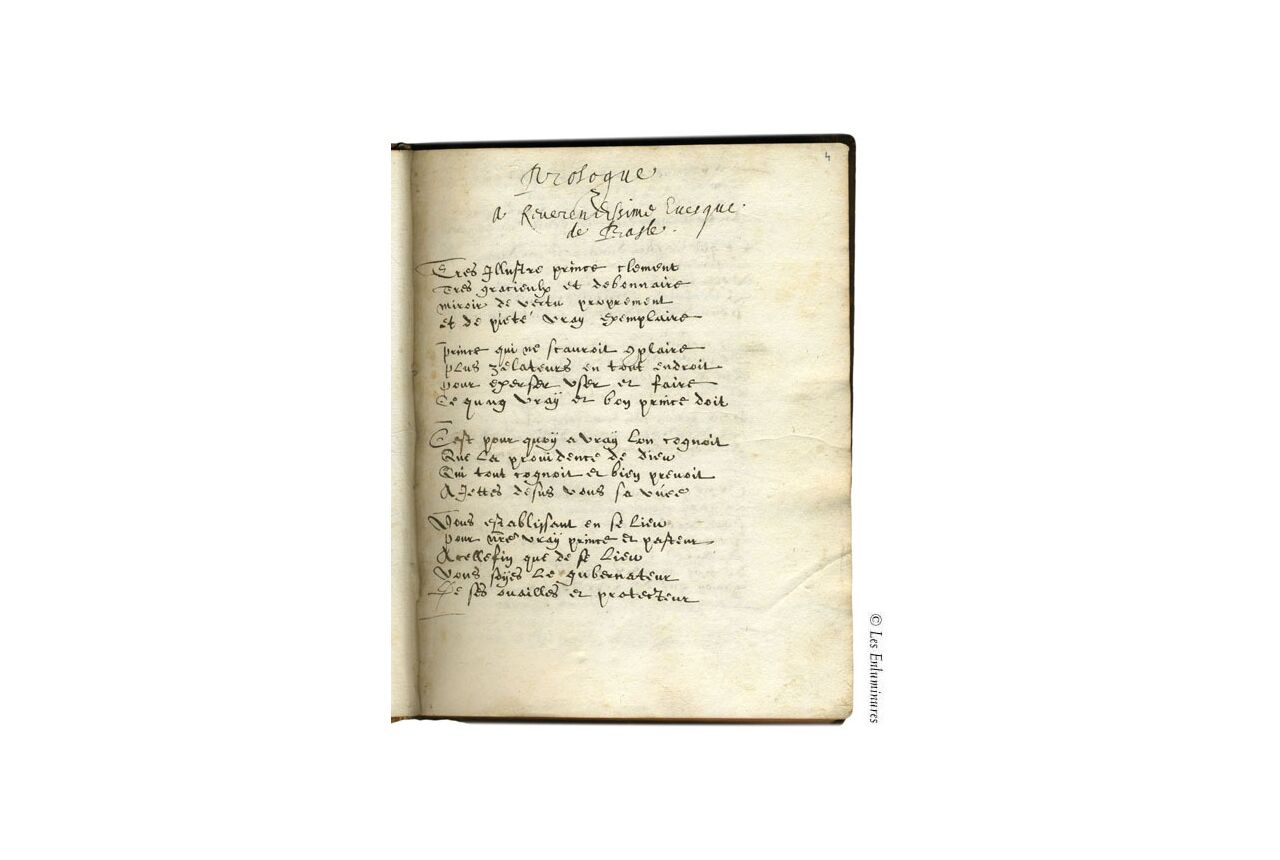 4
Prologue
A Reverendissime Evesque
de Basle.
Tres Illustre prince clement
Tres gracieulx et debonnaire
miroir de vertu proprement
et de pieté vray exemplaire
prince qui ne scauroit 9plaire
plus zelateurs en tout endroit
pour exerser user et faire
Ce qung vray et bon prince doit
Cest pour quoÿ a vray lon cognoit
Que La providence de dieu
Qui tout cognoit et bien prevoit
A Jettes desus vous sa vúee
Vous establissant en se Lieu
pour nre vray prince et pasteur
Acellefin que de se Lieu
Vous soÿes Le gubernateur
De ses ouailles et protecteur
© Les Enluminures